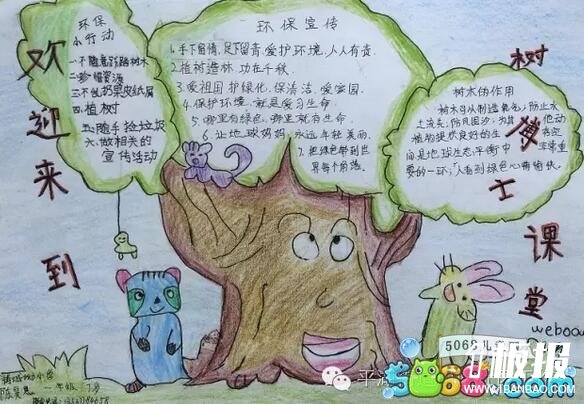 欢迎来到
树博士课堂
环保
小行动
二.珍惜资源
四.植树
五.随手捡垃圾
六.做相关的
宣传活动
环保宣传
1.手下留情,足下留青,爱护环境,人人有责.
2.植树造林,功在千秋.
3.爱祖国 护绿化,保清洁,爱家园.
4.保护环境,就是爱习生命.
5.哪里有绿色,哪里就有生命.
6.让地球妈妈,永远年轻美丽.
7.把绿色带到世
界每个角落.
树木的作用
树木可以制造氧气,防止水
土流失,防风固沙,为其他动
植物提供良好的生
间是地球生态平衡中
要的一环,人看到绿色心情愉快.
一年级
5068儿童网
U板报
WWW.IBANBAO.COM